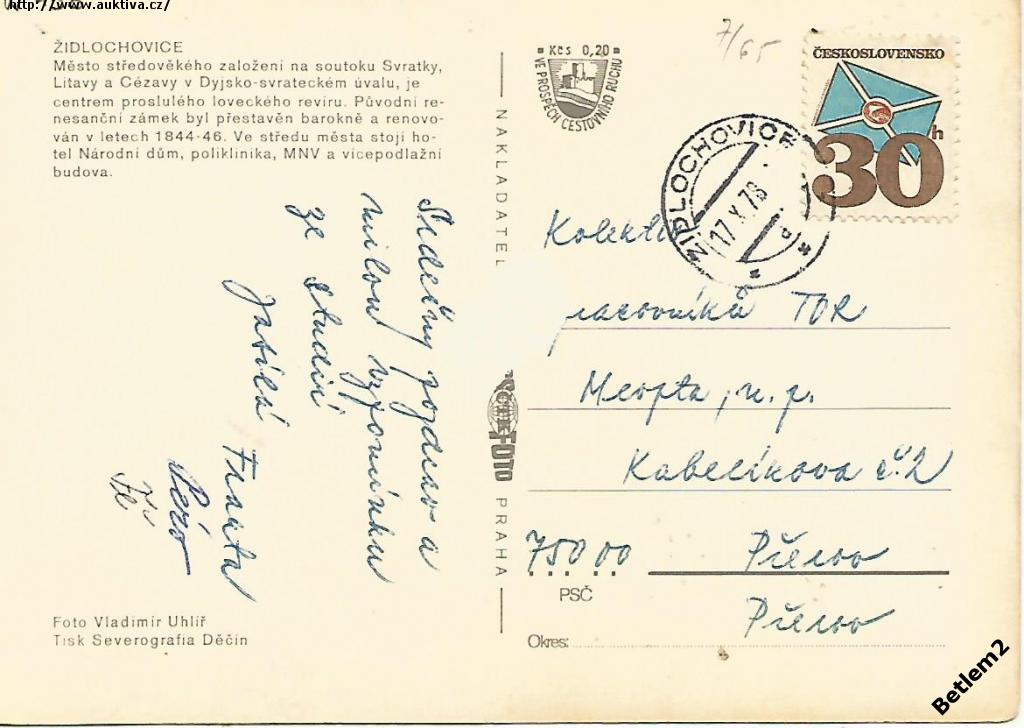 http://www.auktiva.cz/
ŽIDLOCHOVICE
Město středověkého založení na soutoku Svratky,
Litavy a Cézavy v Dyjsko-svrateckém úvalu, je
centrem proslulého loveckého revíru. Původní re-
nesanční zámek byl přestavěn barokně a renovo-
ván v letech 1844-46. Ve středu města stojí ho-
tel Národní dům, poliklinika, MNV a vícepodlažní
budova.
Srdečný pozdrav a
milou vzpomínku
ze studií
posílá Franta
Foto Vladimír Uhlíř
Tisk Severografia Děčín
NAKLADATEL
FOTO PRAHA
Kčs 0,20
VE PROSPĚCH CESTOVNÍHO RUCHU
7/65
ČESKOSLOVENSKO
30 h
ŽIDLOCHOVICE
17. X. 78
Kolektiv
pracovníků TOR
Meopta, n. p.
Kabelíkova č. 2
750 00 Přerov
PSČ
Přerov
Okres:
Betlem2